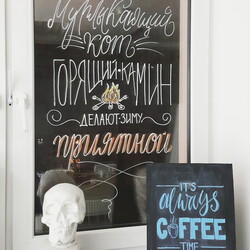 Мурлыкающий
кот
ГОРЯЩИЙ КАМИН
ДЕЛАЮТ ЗИМУ
приятной
IT'S
always
COFFEE
TIME